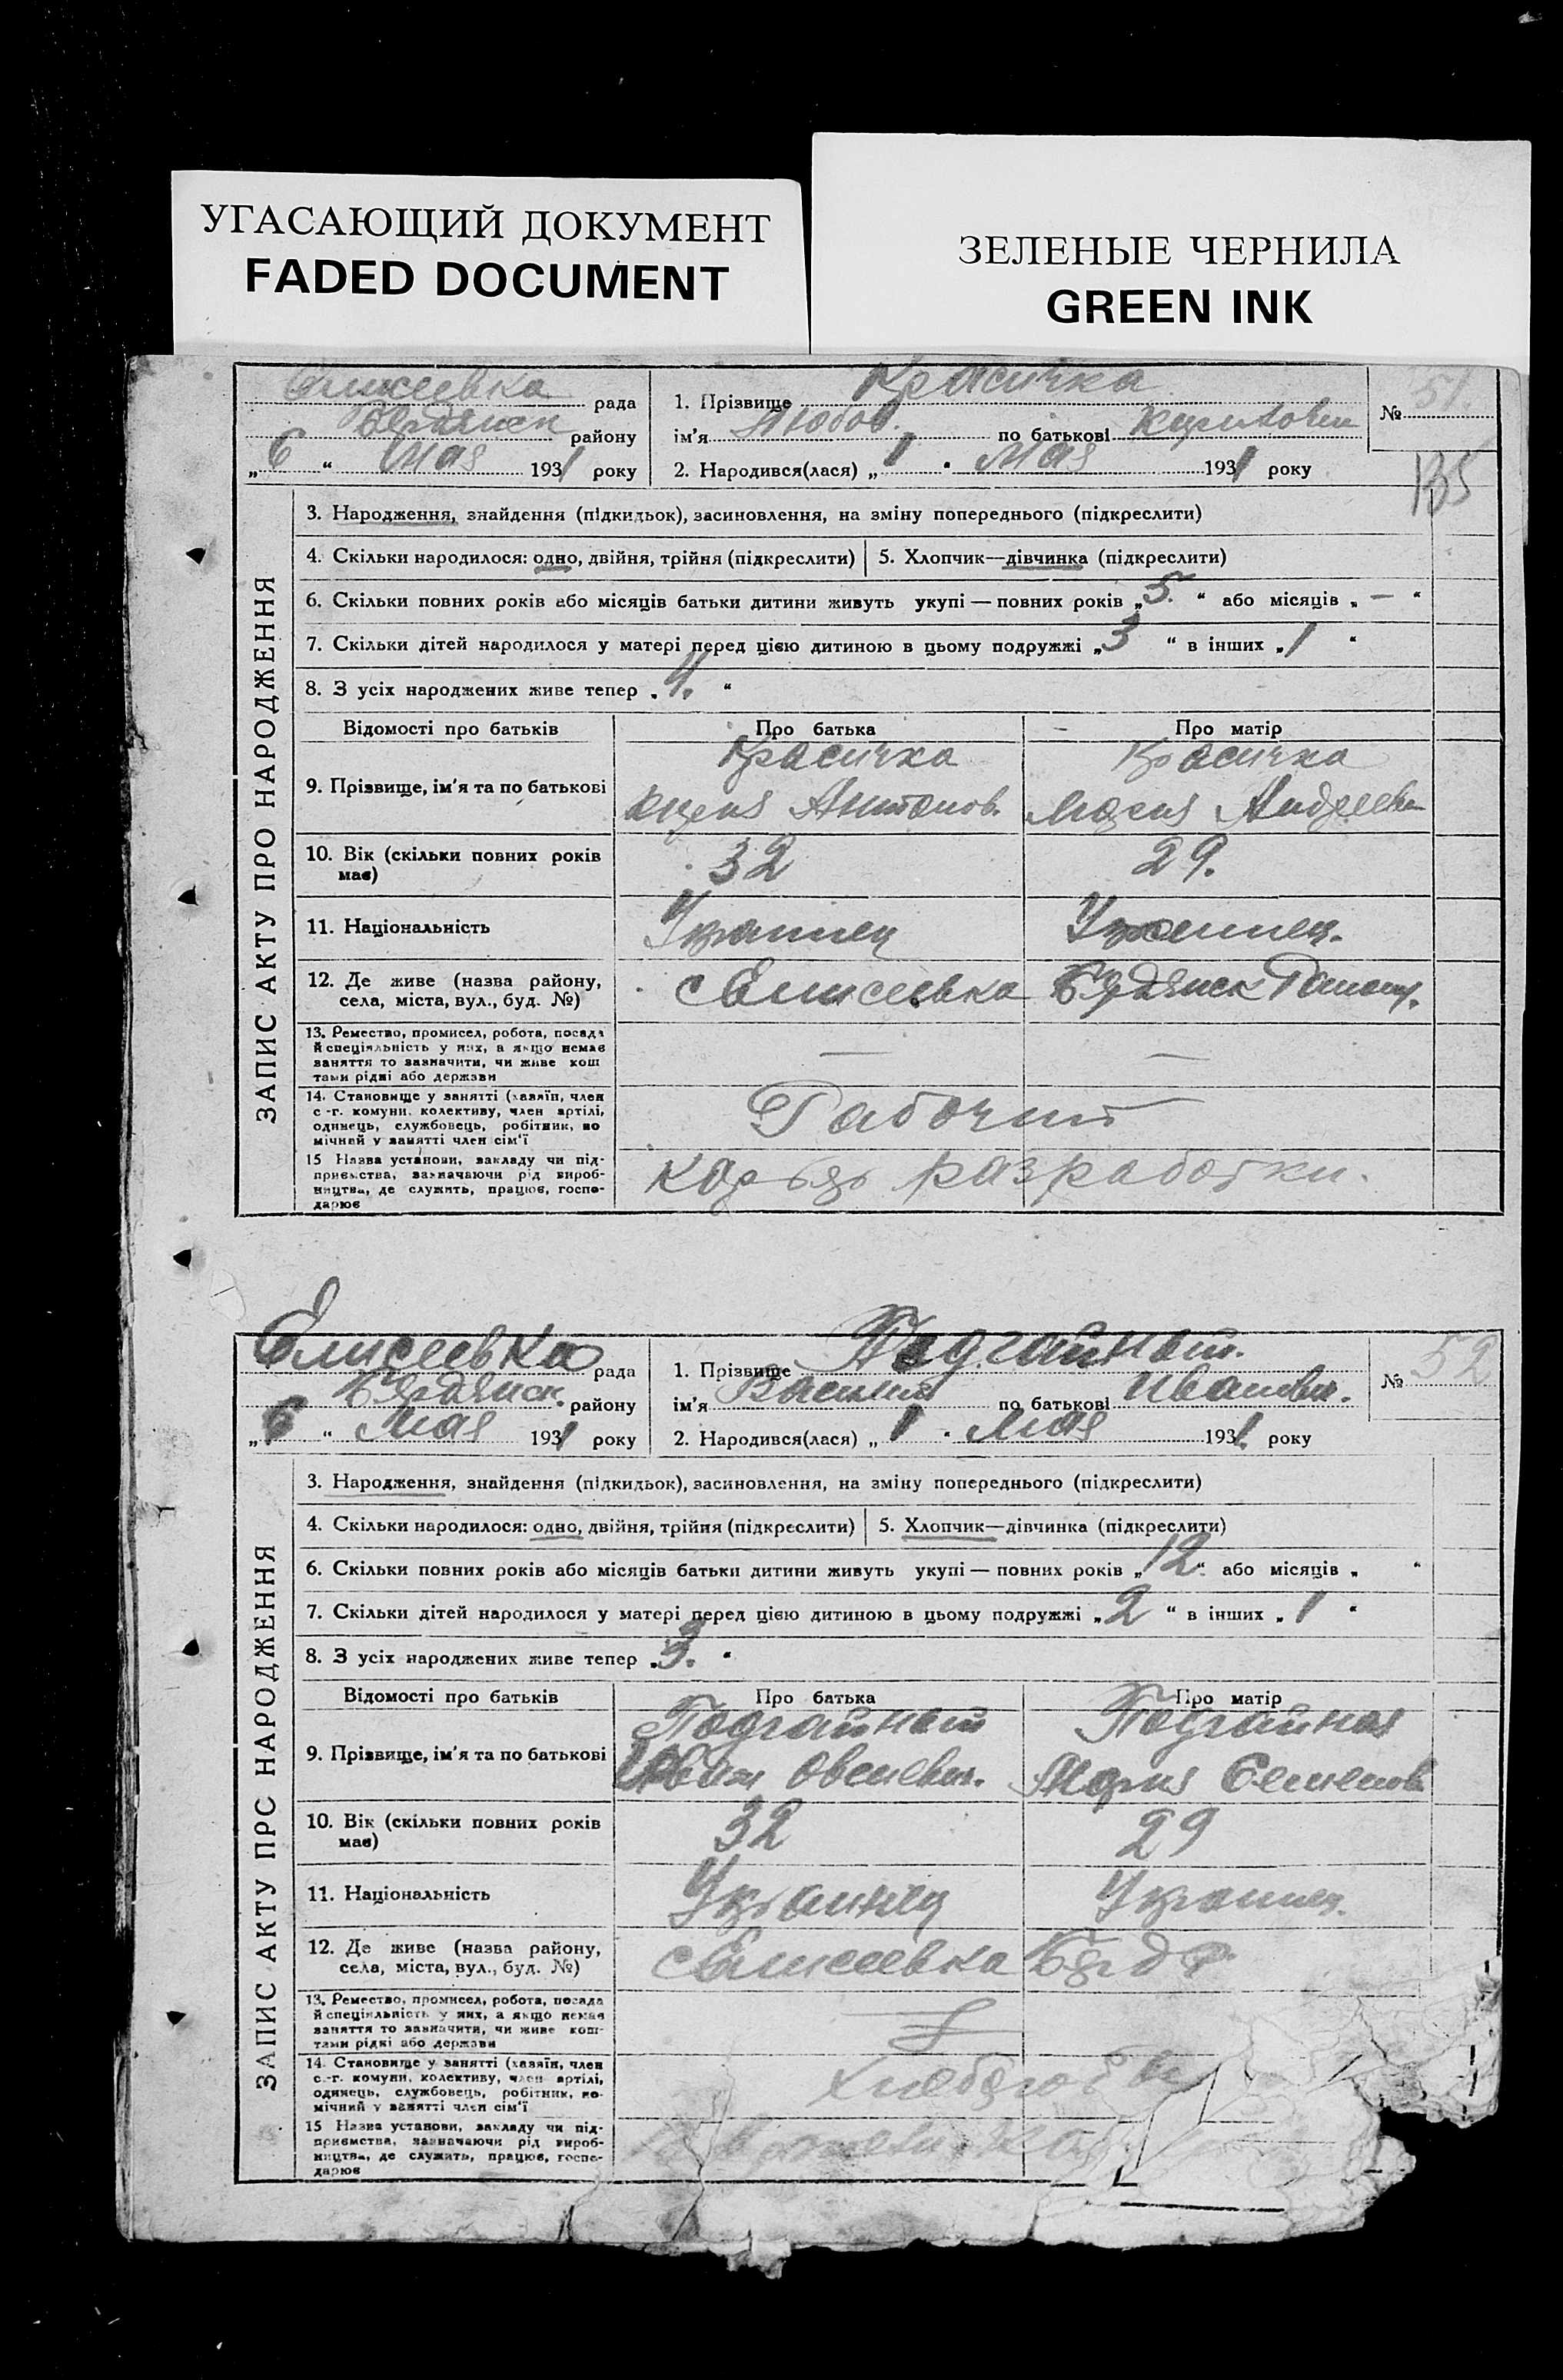 УГАСАЮЩИЙ ДОКУМЕНТ
FADED DOCUMENT
ЗЕЛЕНЫЕ ЧЕРНИЛА
GREEN INK
Елисеевка рада
Бердянск району
„6“ Мая 1931 року
1. Прізвище Красичка
ім'я Любов по батькові
2. Народився(лася) „1“ Мая 1931 року
№ 51.
135
ЗАПИС АКТУ ПРО НАРОДЖЕННЯ
3. Народження, знайдення (підкидьок), засиновлення, на зміну попереднього (підкреслити)
4. Скільки народилося: одно, двійня, трійня (підкреслити)
5. Хлопчик—дівчинка (підкреслити)
6. Скільки повних років або місяців батьки дитини живуть укупі — повних років „5.“ або місяців „—“
7. Скільки дітей народилося у матері перед цією дитиною в цьому подружжі „3“ в інших „1“
8. З усіх народжених живе тепер „4.“
Відомості про батьків Про батька Про матір
9. Прізвище, ім'я та по батькові
Красичка Красичка
Антонов. Мария Андреевн
10. Вік (скільки повних років має)
32 29.
11. Національність
Украинец Украинец.
12. Де живе (назва району, села, міста, вул., буд. №)
с Елисеевка Бердянск
13. Ремество, промисел, робота, посада
й спеціяльність у них, а якщо немає
заняття то зазначити, чи живе кош
тами рідні або держави
— —
14. Становище у занятті (хазяїн, член
с.-г. комуни, колективу, член артілі,
одинець, службовець, робітник, по
мічний у занятті член сім'ї
Рабочий
15 Назва установи, закладу чи під-
приємства, зазначаючи рід вироб-
ництва, де служить, працює, госпо-
дарює
разработки.
Елисеевка рада
Бердянск. району
„6“ Мая 1931 року
1. Прізвище Подгайной.
ім'я Василий по батькові Иванович.
2. Народився(лася) „1“ Мая 1931. року
№ 52
ЗАПИС АКТУ ПРС НАРОДЖЕННЯ
3. Народження, знайдення (підкидьок), засиновлення, на зміну попереднього (підкреслити)
4. Скільки народилося: одно, двійня, трійня (підкреслити)
5. Хлопчик—дівчинка (підкреслити)
6. Скільки повних років або місяців батьки дитини живуть укупі — повних років „12“ або місяців „ “
7. Скільки дітей народилося у матері перед цією дитиною в цьому подружжі „2“ в інших „1“
8. З усіх народжених живе тепер „3.“
Відомості про батьків Про батька Про матір
9. Прізвище, ім'я та по батькові
Подгайной Подгайная
Иван Мария Семенов
10. Вік (скільки повних років має)
32 29
11. Національність
Украинец Украинец.
12. Де живе (назва району, села, міста, вул., буд. №)
с Елисеевка Берд Р
13. Ремество, промисел, робота, посада
й спеціяльність у них, а якщо немає
заняття то зазначити, чи живе кош-
тами рідні або держави
14. Становище у занятті (хазяїн, член
с.-г. комуни, колективу, член артілі,
одинець, службовець, робітник, по-
мічний у занятті член сім'ї
15 Назва установи, закладу чи під-
приємства, зазначаючи рід вироб-
ництва, де служить, працює, госпо-
дарює